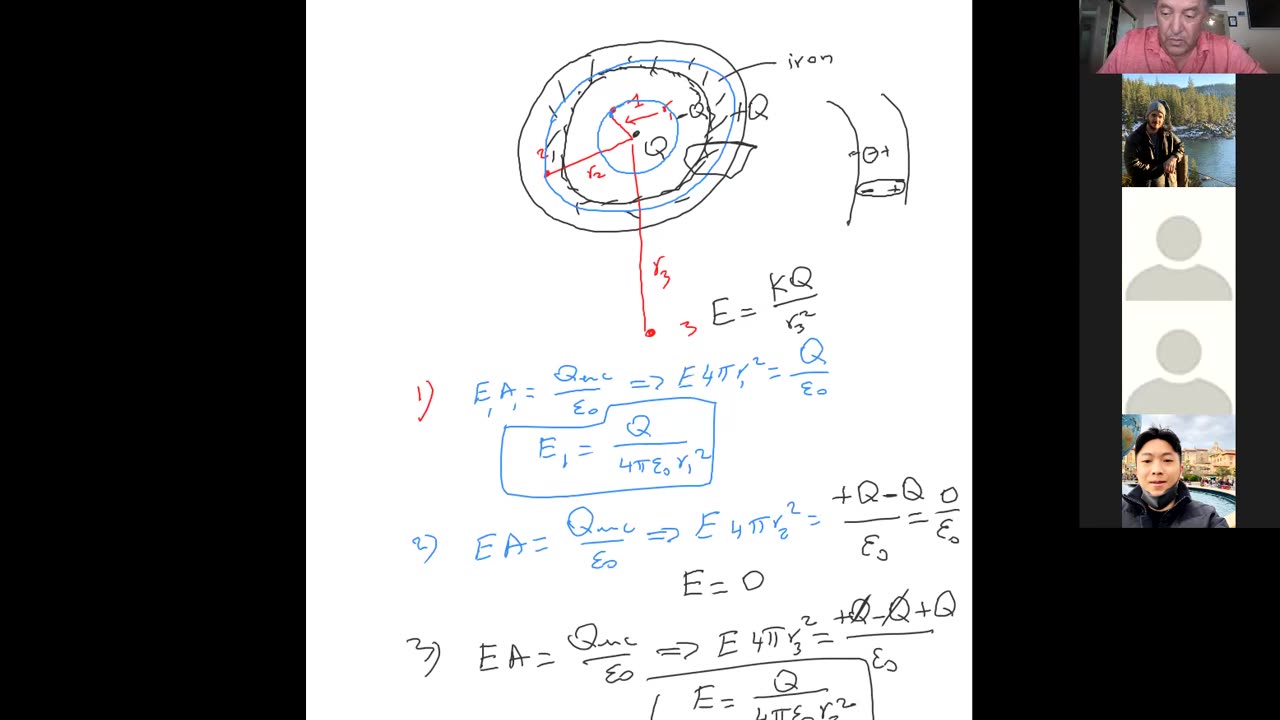 iron
1 r₁ -Q +Q
2 Q
r₂
- ⊖ +
- +
r₃
3 E = KQ/r₃²
1) E₁A₁ = Qenc/ε₀ => E4πr₁² = Q/ε₀
E₁ = Q/4πε₀r₁²
2) EA = Qenc/ε₀ => E4πr₂² = +Q-Q/ε₀ = 0/ε₀
E = 0
3) EA = Qenc/ε₀ => E4πr₃² = +Q-Q+Q/ε₀
E = Q/4πε₀r₃²